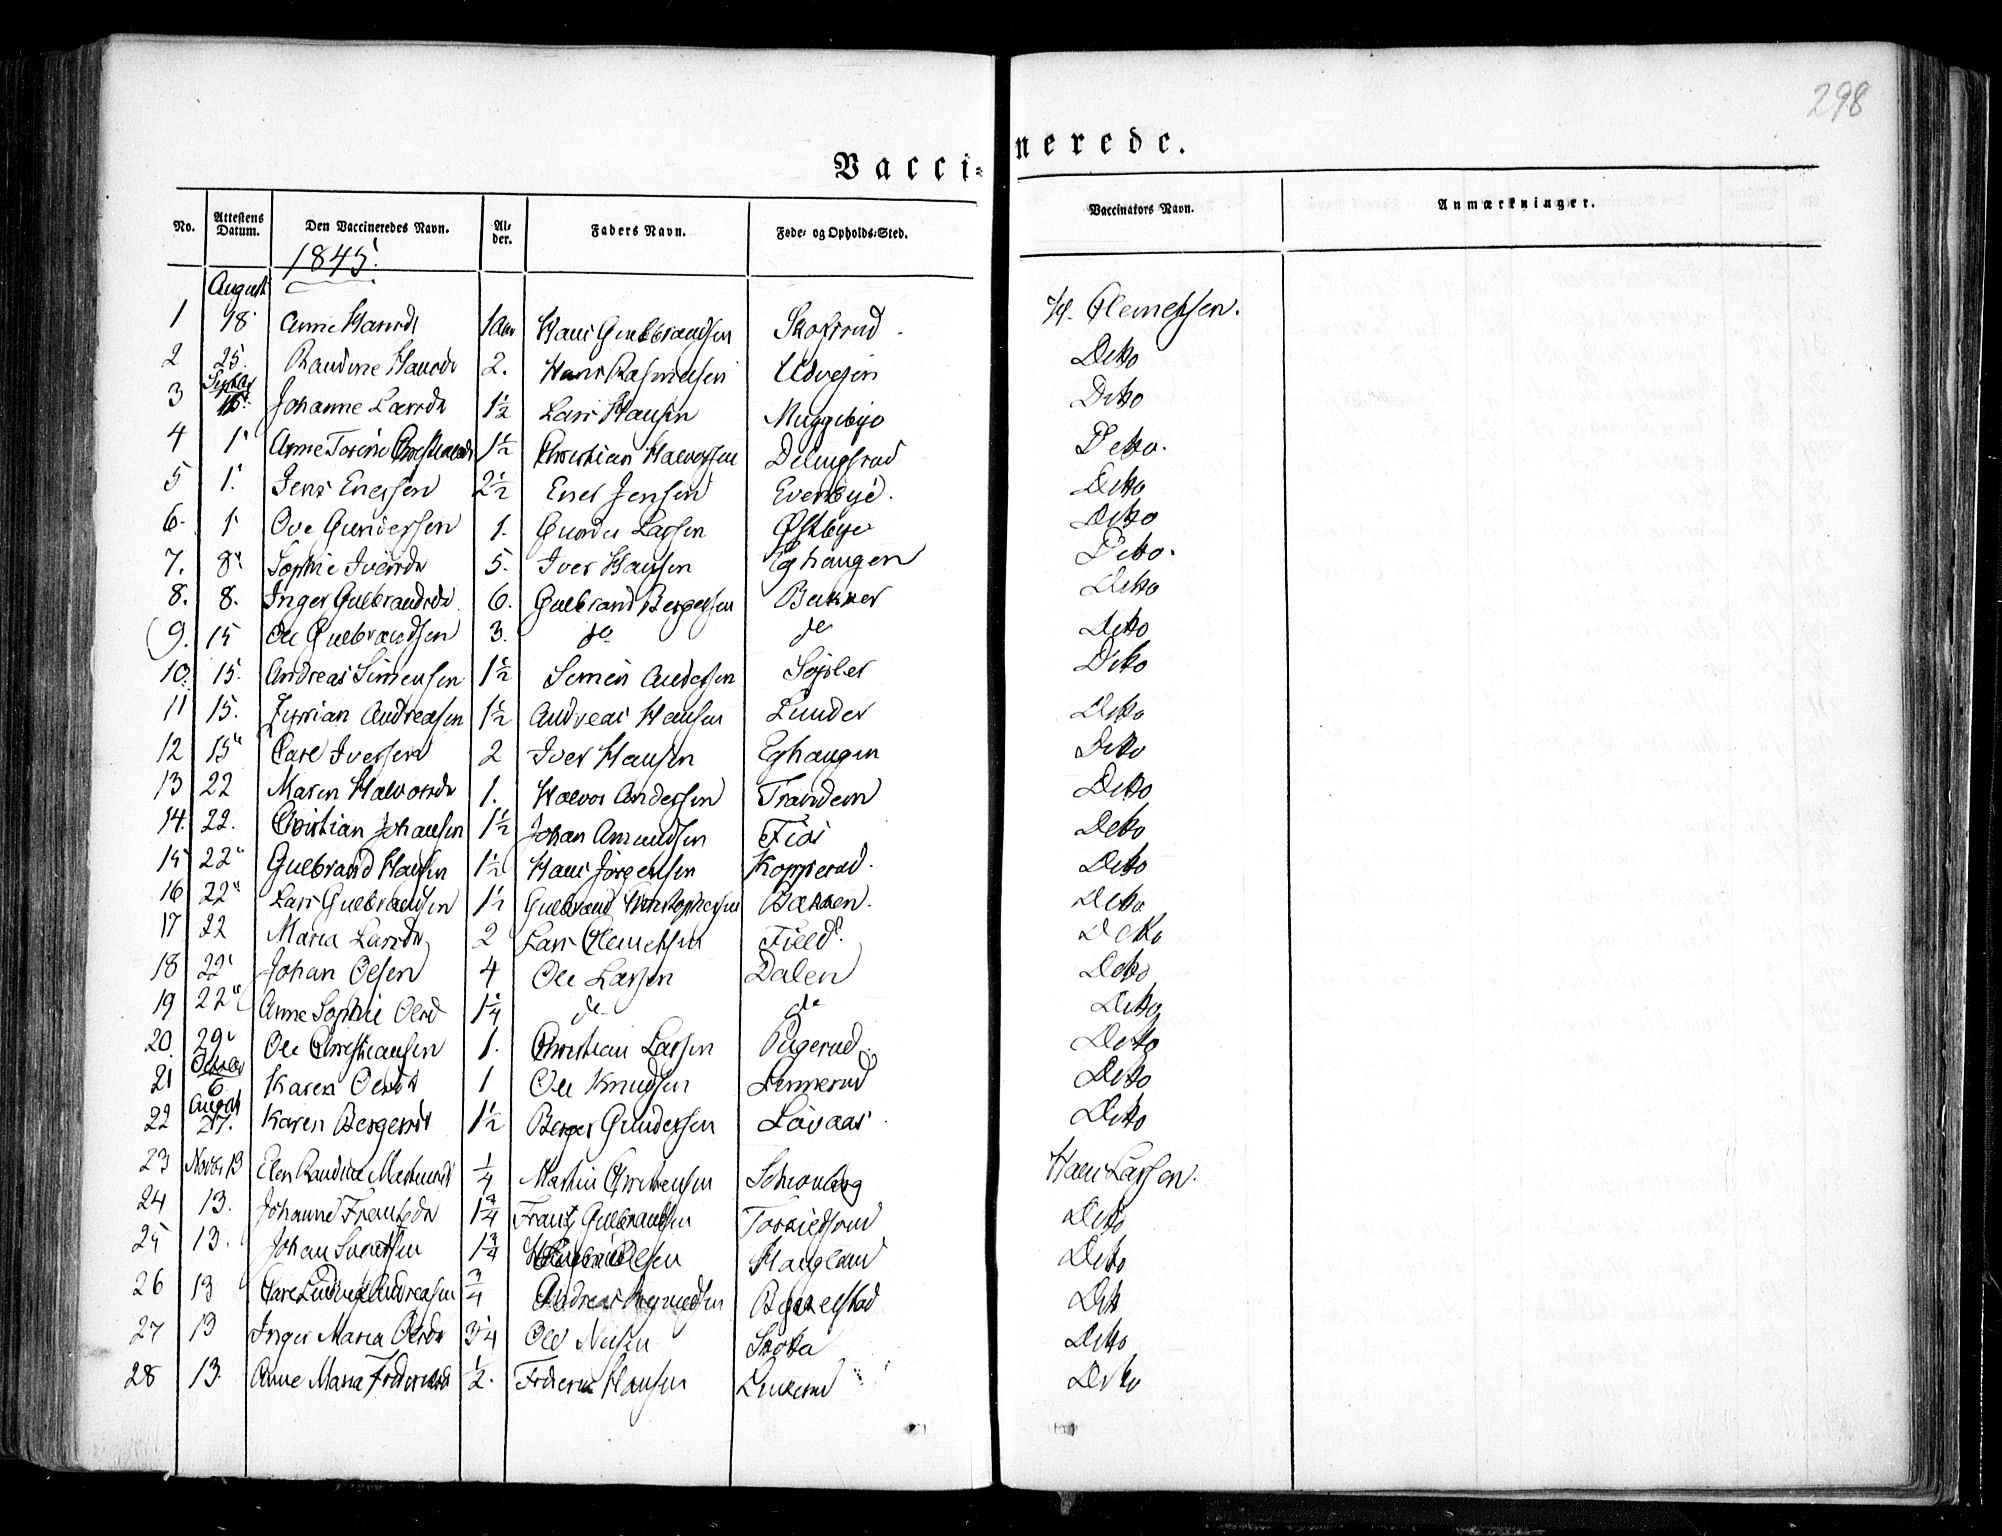 298
Vacci=nerede.
No. Attestens Datum. Den Vaccineredes Navn. Al-der. Faders Navn. Føde- og Opholds-Sted. Vaccinators Navn. Anmærkninger.
1845.
August
1 18 Anne Hansdr 1 Aar Hans Gulbrandsen H. Clemetsen.
2 25. Randine Hansdr 2. Hans Rasmussen Ditto
3 Johanne Larsdr 1½ Lars Hansen Muggebye Ditto
4 1 Anne 1½ Christian Halvorsen Ditto.
5 1. Jens Enersen 2½ Ener Jensen Evenbye. Ditto
6. 1 Ove Gundersen 1. Gunder Larsen Østbye Ditto
7. 8 Sophie Iversdr 5. Iver Hansen Eghaugen Ditto.
8. 8. Inger Gulbrandsdr 6. Gulbrand Bergersen Bakker Ditto
9. 15 Ole Gulbrandsen 3. do do Ditto
10. 15. Andreas Simensen 1½ Simen Andersen Ditto
11 15. Andreasen 1½ Andreas Hansen Lunder Ditto
12 15 Carl Iversen 2 Iver Hansen Eghaugen Ditto
13 22 Maren Halvorsdr 1. Halvor Andersen Trandem Ditto
14. 22. Christian Johansen 1½ Johan Amundsen Ditto
15 22 Gulbrand Hansen 1½ Hans Jörgensen Kopperud. Ditto
16 22 Lars Gulbrandsen 1½ Gulbrand Christophersen Bakken. Ditto
17 22 Maria Larsdr 2 Lars Clemetsen Ditto
18 22 Johan Olsen 4 Ole Larsen Dalen Ditto
19 22 Anne Sophie Olsd 1¼ do do Ditto
20. 29 Ole Christiansen 1. Christian Larsen Ditto
October
21 6 Karen Olsdr 1 Ole Knudsen Ditto
August
22 27. Karen Bergersdr 1½ Berger Gundersen Løvaas Ditto
23 Novbr 13 Elen Randine ¼ Martin Christensen Hans Larsen.
24 13. Johanne Frantsdr 1¾ Frants Gulbrandsen Ditto
25 13. Johan 1¾ Olsen Haugland Ditto
26 13 Andreasen ¾ Andreas Ditto
27 13 Inger Maria Olsdr 3¼ Ole Nilsen Ditto
28 13. Anne Maria ½. Hansen Ditto